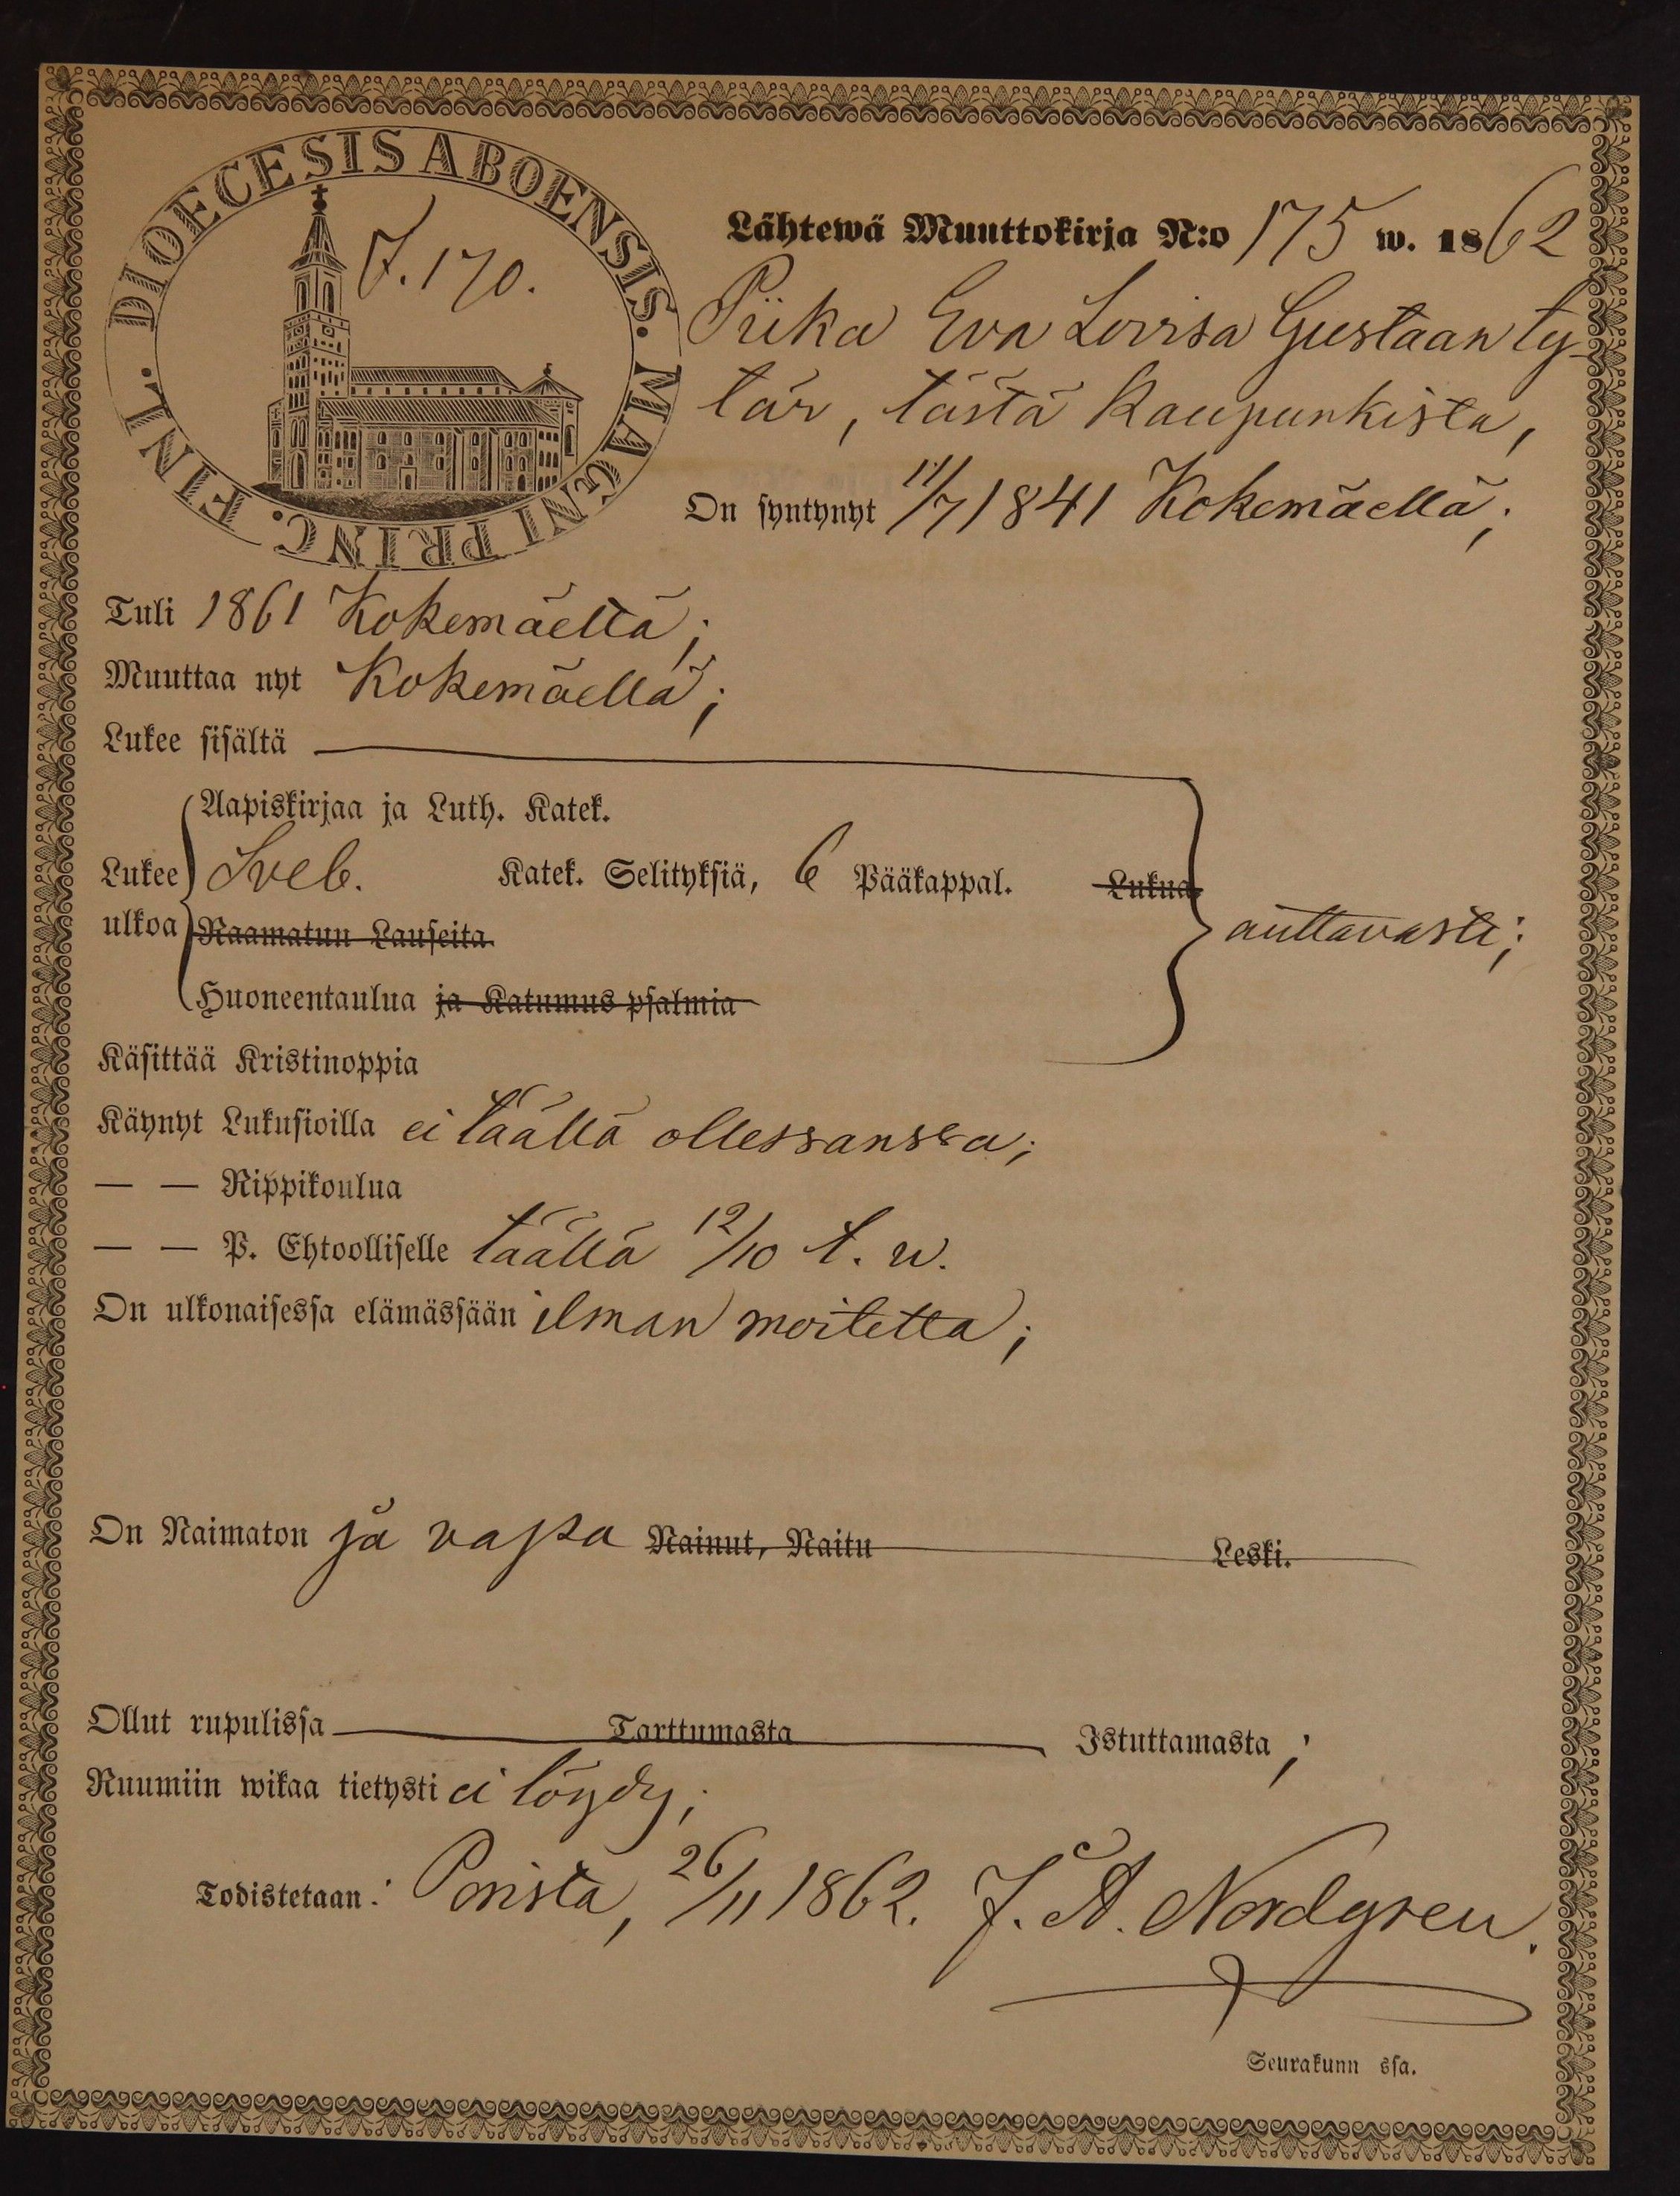 DIOECESIS ABOENSIS. MAGNI PRINC. FINL.
F. 170.
Lähtewä Muuttokirja N:o 175 w. 1862
Piika Eva Lovisa Gustaan ty-
tär, tästä kaupunkista,
On syntynyt 11/7 1841 Kokemäellä;
Tuli 1861 Kokemäeltä;
Muuttaa nyt Kokemäellä;
Lukee sisältä
Aapiskirjaa ja Luth. Katek.
Lukee Sveb. Katek. Selityksiä, 6 Pääkappal. Lukua
ulkoa Raamatun Lauseita auttavasti;
Huoneentaulua ja Katumus psalmia
Käsittää Kristinoppia
Käynyt Lukusioilla ei täällä ollessansa;
— — Rippikoulua
— — P. Ehtoolliselle täällä 12/10 t. w.
On ulkonaisessa elämässään ilman moitetta;
On Naimaton ja vapaa Nainut, Naitu Leski.
Ollut rupulissa Tarttumasta Istuttamasta;
Ruumiin wikaa tietysti ei löydy;
Todistetaan: Porista, 26/11 1862. J. A. Nordgren.
Seurakunn ssa.